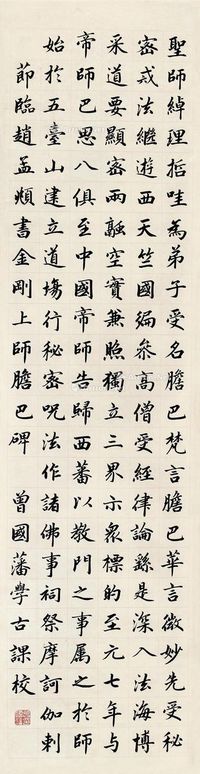 聖師綽理哲哇為弟子受名膽巴梵言膽巴華言微妙先受秘
密戒法繼遊西天竺國徧參高僧受經律論繇是深入法海博
采道要顯密兩融空實兼照獨立三界示衆標的至元七年與
帝師巴思八俱至中國帝師告歸西蕃以教門之事屬之於師
始於五臺山建立道場行秘密呪法作諸佛事祠祭摩訶伽剌
節臨趙孟頫書金剛上師膽巴碑 曾國藩學古課校